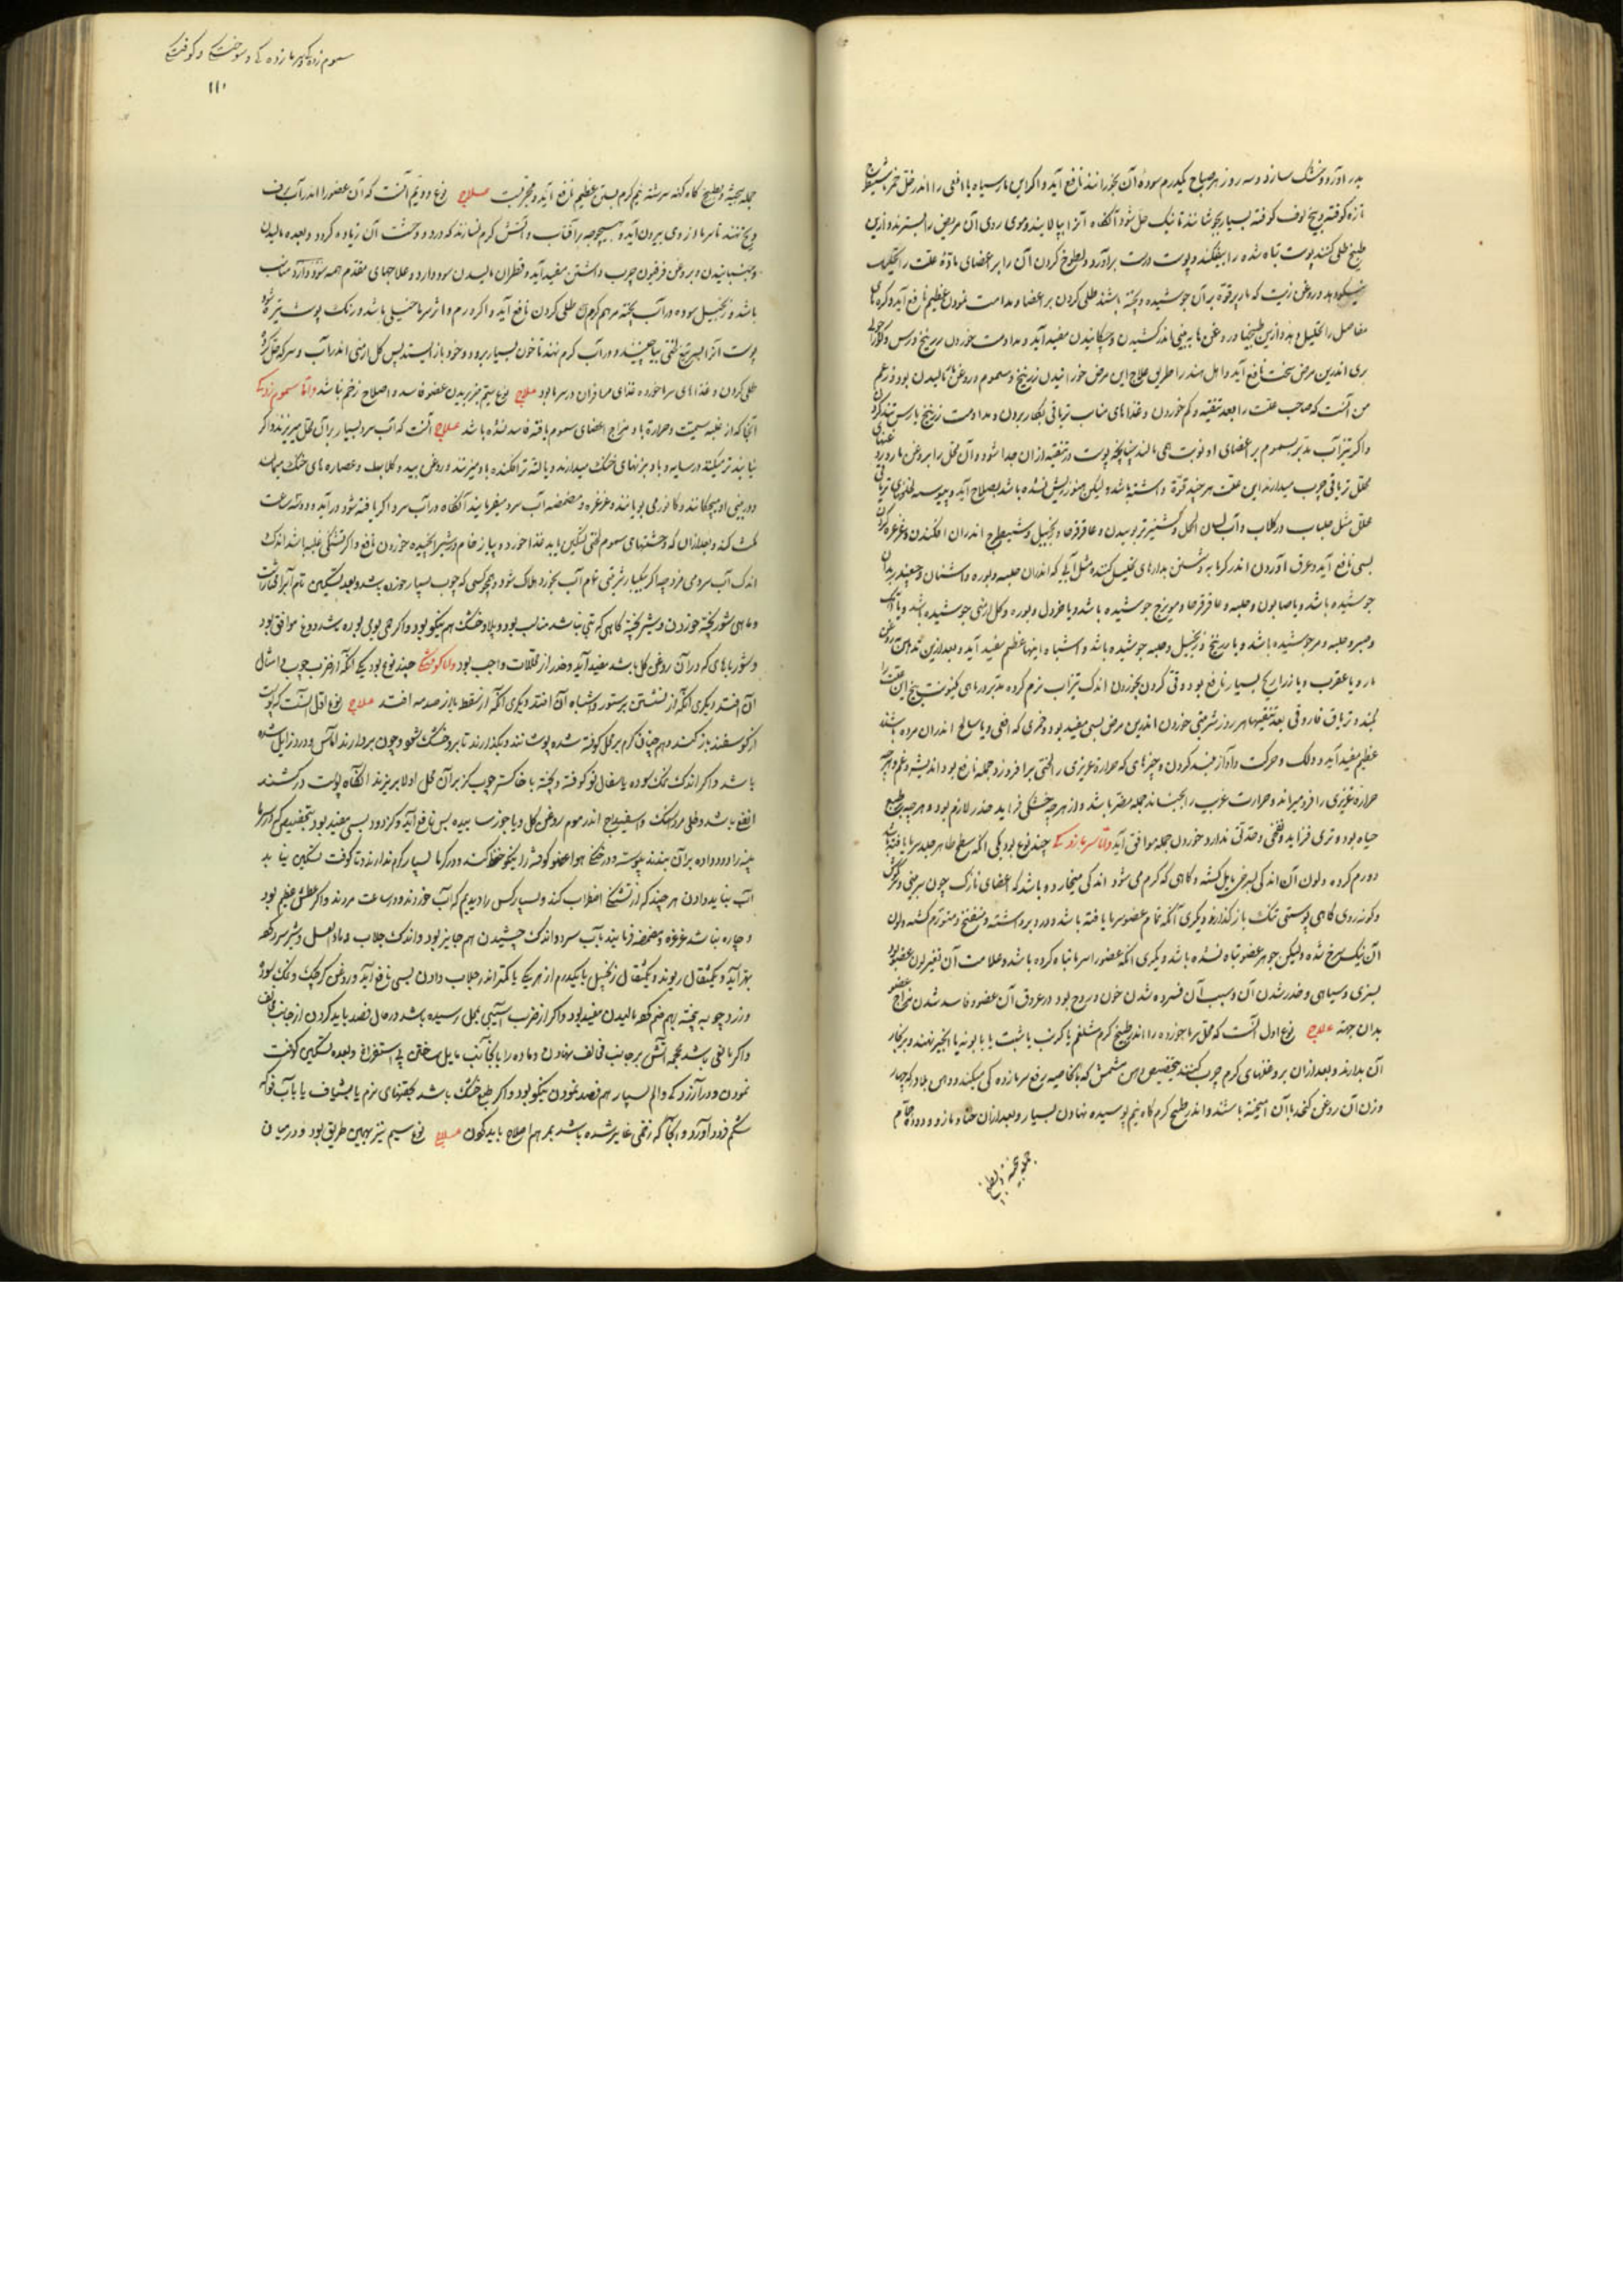 بدر آورد و خشک سازد و سه روز هر صباح یکدرم سوده آن بخورانند نافع آید و اگر این مار سیاه یا افعی را اندر خل خمر
تازه کوفته و بیخ لوف کوفته بسیار بجوشانند تا نیک حل شود آنگاه آنرا بپالایند و موی روی آن مریض را بسترند و ازین
طبیخ طلی کنند پوست تباه شده را بیفکند و پوست درست برآورد و لطوخ کردن آن را بر اعضای مادۀ علت را
و روغن زیت که مار پر قوة بر آن جوشیده و پخته باشند طلی کردن بر اعضا و مداومت نمودن عظیم نافع آید
مفاصل را تحلیل دهد و ازین طبیخها و روغن ها به بینی اندر کشیدن و چکانیدن مفید آید و مداومت خوردن
بری اندرین مرض سخت نافع آید و اهل هند را طریق علاج این مرض خورانیدن زرنیخ و سموم و روغن مالیدن بود و زعم
من آنست که صاحب علت را بعد تنقیه و کم خوردن و غذاهای مناسب تریاقی بکار بردن و مداومت زرنیخ
و اگر تیزآب مدبر بسموم بر اعضای او نوبت همی مالند چنانچه پوست در تنقیه از آن جدا شود و آن محل را بروغن مار و
محلل تریاقی چرب میدارند این علت هر چند قوة داشته باشد ولیکن هنوز ریش نشده باشد بصلاح آید
محلل مثل جلباب در گلاب و آب لسان الحمل و گشنیز تر بوییدن و عاقرقرحا و زنجبیل و شیطرج اندر آن افکندن و غرغره کردن
بسی نافع آید و عرق آوردن اندر گرمابه و شستن بداروهای تحلیل کننده مثل آبی که اندر آن حلبه و بوره و اشنان و چغندر
جوشیده باشد و یا صابون و حلبه و عاقرقرحا و مویزج جوشیده باشد و یا خردل و بوره و گل ارمنی جوشیده باشد
و صبر و حلبه و مر جوشیده باشد و یا زرنیخ و زنجبیل و حلبه جوشیده باشد و اشباه اینها عظیم مفید آید و بعد ازین
مار و یا عقرب و یا ذراریح بسیار نافع بود و قی کردن بخوردن اندک تیزاب نرم کرده مدبر در ماهی
کنند و تریاق فاروقی بعد تنقیها هر روز شربتی خوردن اندرین مرض بسی مفید بود و خمری که افعی و یا سالخ اندر آن مرده باشند
عظیم مفید آید و دلک و حرکت و آواز بلند کردن و چیزهای که حرارة غریزی را لختی برافروزد جمله نافع بود و اندیشه و غم و هرچه
حرارة غریزی را فرو میراند و حرارت غریب را بجنباند جمله مضر باشد و از هرچه خشکی فزاید حذر لازم بود و هرچه بطبع
حیاة بود و تری فزاید و نفخی و حدتی ندارد خوردن جمله موافق آید و اما سرمازدگی چند نوع بود یکی آنکه سطح ظاهر جلد سرما یافته باشد
و ورم کرده و لون آن اندکی بسرخی مایل گشته و گاهی که گرم می شود اندکی میخارد و باشد که اعضای نازک چون سر بینی و گوش
و گونه روی گاهی پوستی تنک باز گذارند دیگری آنکه تمام عضو سرما یافته باشد و درد برداشته و منتفخ و متورم گشته و لون
آن نیک سرخ شده ولیکن جوهر عضو تباه نشده باشد دیگری آنکه عضو را سرما تباه کرده باشد و علامت آن تغیر لون عضو بود
بسبزی و سیاهی و خدر شدن آن و سبب آن فسرده شدن خون و روح بود در عروق آن عضو و فاسد شدن مزاج عضو
بدان جهة علاج نوع اول آنست که محل سرما خورده را اندر طبیخ گرم شلغم یا کرنب یا شبت یا بابونه یا انجیر نهند و بر بخار
آن بدارند و بعد از آن بروغنهای گرم چرب کنند بتخصیص دهن مشمش که بالخاصیه رفع سرمازدگی میکند و دهن بلادر که چهار
وزن آن روغن کنجد با آن آمیخته باشند و اندر طبیخ گرم کاه نیم پوسیده نهادن بسیار و بعد از آن حنا و مازو
جمله بیخته و بطبیخ
سموم زدگی و سرمازدگی و سوختگی و کوفتگی
۱۱۰
جمله بیخته و بطبیخ کاه کهنه سرشته نیم گرم بستن عظیم نافع آید و مجربست علاج نوع دویم آنست که آن عضو را اندر آب برف
و یخ نهند تا سرما از وی بیرون آید و بهیچوجه بر آفتاب و آتش گرم نسازند که درد و وحشت آن زیاده گردد و بعده مالیدن
و جنبانیدن و بروغن فرفیون چرب داشتن مفید آید و قطران مالیدن سود دارد و علاجهای مقدم همه سود دارد
باشد و زنجبیل سوده در آب پخته مرهم کردن طلی کردن نافع آید و اگر ورم و اثر سرما خیلی باشد و رنگ پوست تیره شود
پوست آنرا بسر تیغ لختی بیاچینند و در آب گرم نهند تا خون بسیار برود و خود باز ایستد پس گل ارمنی اندر آب و سرکه حل کرده
طلی کردن و غذاهای سرماخورده غذای مسافران در سرما بود علاج نوع سیم بریدن عضو فاسد و اصلاح زخم باشد و اما سموم زدگی
آنجا که از غلبه سمیت و حرارة باد مزاج اعضای سموم یافته فاسد نشده باشد علاج آنست که آب سرد بسیار بر آن محل میریزند و اگر
نیابند تر میکنند در سایه و بادبزنهای خنک میدارند و یا لته تر افکنده باد میزنند و روغن بید و گلاب و عصاره های خنک
در بینی او میچکانند و کافور می بویانند و غرغره و مضمضه آب سرد میفرمایند آنگاه در آب سرد اگر یافته شود درآید و دو سه ساعت
مکث کند و بعد از آن که وحشتهای سموم لختی تسکین یابد غذا خورد و پیاز خام و شیر خوردن نافع و اگر تشنگی غلبه باشد اندک
اندک آب سرد می مزد چه اگر بیکبار شربتی تمام آب بخورد هلاک شود
و ماهی شور پخته خوردن و شیر پخته گاهی که تبی نباشد مناسب بود و پلاو خشک هم نیکو بود
و شورباهای که در آن روغن گل باشد مفید آید و حذر از مقلات واجب بود و اما کوفتگی چند نوع بود یکی آنکه از ضرب چوب و امثال
آن افتد دیگری آنکه از نشستن بر ستور و اشباه آن افتد دیگری آنکه از سقطه یا از صدمه افتد علاج نوع اول آنست که پوست
از گوسفند باز کنند و هم چنان گرم بر محل کوفته شده پوشانند و بگذارند تا برو خشک شود و چون بردارند آماس و درد زایل شده
باشد و اگر اندک نمک سوده یا سفال نو کوفته و بیخته با خاکستر چوب گز بر آن محل اولا بریزند آنگاه پوست درکشند
انفع باشد و طلی مرداسنگ و اسفیداج اندر موم روغن گل و یا جوز ساییده بس نافع آید
پنبه را دود داده بر آن بندند پیوسته و در خنکی هوا عضو کوفته را نیکو حفظ کند و در گرما بسیار گرم ندارند و تا کوفت تسکین نیابد
آب نباید دادن هر چند که از تشنگی اضطراب کند و بسیار کس را دیدیم که آب خوردند و در ساعت مردند و اگر عطش عظیم بود
و چاره نباشد غرغره و مضمضه فرمایند بآب سرد و اندک چشیدن هم جایز بود و اندک جلاب و ماء العسل و شیر
بهتر آید و یکمثقال ریوند و یکمثقال زنجبیل یا یکدرم از هر یک یا کمتر اندر جلاب دادن بسی نافع آید و روغن کرچک و نمک سوده
و زرد چوبه پخته بهم ضم کرده مالیدن مفید بود و اگر از ضرب آسیبی بمحل رسیده باشد در حال فصد باید کردن از جانب مخالف
و اگر مانعی باشد محجمه آتش بر جانب مخالف نهادن و ماده را بآنجانب مایل ساختن بی استفراغ و بعده تسکین کوفت
نمودن و در آزردگی و الم بسیار هم فصد نمودن نیکو بود و اگر طبع خشک باشد بحقنهای نرم یا بشیاف یا بآب فواکه
شکم فرود آورد و آنجا که زخمی ظاهر شده باشد بمرهم اصلاح باید کردن علاج نوع سیم نیز بهمین طریق بود و در میان